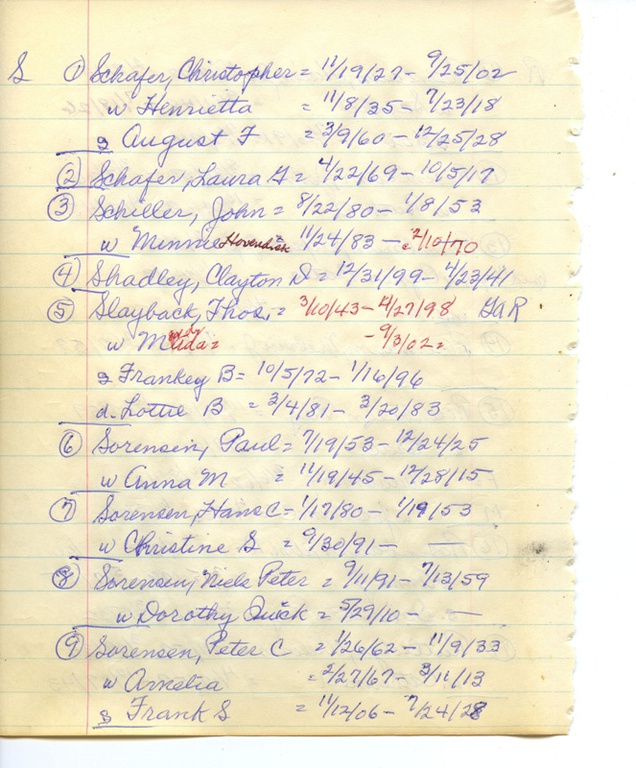 S ① Schafer, Christopher = 11/19/27 - 9/25/02
w Henrietta = 11/8/35 - 7/23/18
s August F = 3/9/60 - 12/25/28
② Schafer, Laura G = 4/22/69 - 10/5/17
③ Schiller, John = 8/22/80 - 1/8/53
w Minnie Hovendick = 11/24/83 - 2/10/70
④ Shadley, Clayton D = 12/31/99 - 4/23/41
⑤ Slayback, Thos, = 3/10/43 - 4/27/98 GAR
w M = - 9/3/02 =
s Frankey B = 10/5/72 - 1/16/96
d. Lottie B = 3/4/81 - 3/20/83
⑥ Sorensen, Paul = 7/19/53 - 12/24/25
w Anna M = 11/19/45 - 12/28/15
⑦ Sorensen, Hans C = 1/17/80 - 1/19/53
w Christine S = 9/30/91 - —
⑧ Sorensen, Niels Peter = 9/11/91 - 7/13/59
w Dorothy Quick = 5/29/10 - —
⑨ Sorensen, Peter C = 1/26/62 - 11/9/33
w Amelia = 2/27/67 - 3/11/13
s Frank S = 11/12/06 - 7/24/28